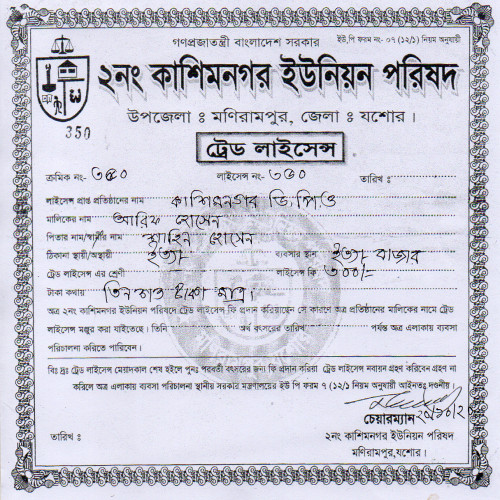 গণপ্রজাতন্ত্রী বাংলাদেশ সরকার
ইউ, পি ফরম নং- ০৭ (১২/১) নিয়ম অনুযায়ী
২নং কাশিমনগর ইউনিয়ন পরিষদ
উপজেলা ঃ মণিরামপুর, জেলা ঃ যশোর।
350
ট্রেড লাইসেন্স
ক্রমিক নং- ৩৫০ লাইসেন্স নং- ৩৫০ তারিখ ঃ
লাইসেন্স প্রাপ্ত প্রতিষ্ঠানের নাম কাশিমনগর ডি,পিও
মালিকের নাম আরিফ হোসেন
পিতার নাম/স্বামীর নাম শাহিন হোসেন
ঠিকানা স্থায়ী/অস্থায়ী ইত্যা ব্যবসার স্থান ইত্যা বাজার
ট্রেড লাইসেন্স এর শ্রেণী লাইসেন্স ফি ৩০০/-
টাকা কথায় তিনশত টাকা মাত্র।
অত্র ২নং কাশিমনগর ইউনিয়ন পরিষদে ট্রেড লাইসেন্স ফি প্রদান করিয়াছেন সে কারণে অত্র প্রতিষ্ঠানের মালিকের নামে ট্রেড
লাইসেন্স মঞ্জুর করা যাইতেছে। তিনি অর্থ বৎসরের তারিখ পর্যন্ত অত্র এলাকায় ব্যবসা
পরিচালনা করিতে পারিবেন।
বিঃ দ্রঃ ট্রেড লাইসেন্স মেয়াদকাল শেষ হইলে পুনঃ পরবর্তী বৎসরের জন্য ফি প্রদান করিয়া ট্রেড লাইসেন্স নবায়ন গ্রহণ করিবেন গ্রহণ না
করিলে অত্র এলাকায় ব্যবসা পরিচালনা স্থানীয় সরকার মন্ত্রণালয়ের ইউ পি ফরম ৭ (১২/১) নিয়ম অনুযায়ী আইনতঃ দণ্ডনীয়।
চেয়ারম্যান
তারিখ ঃ
২নং কাশিমনগর ইউনিয়ন পরিষদ
মণিরামপুর,যশোর।